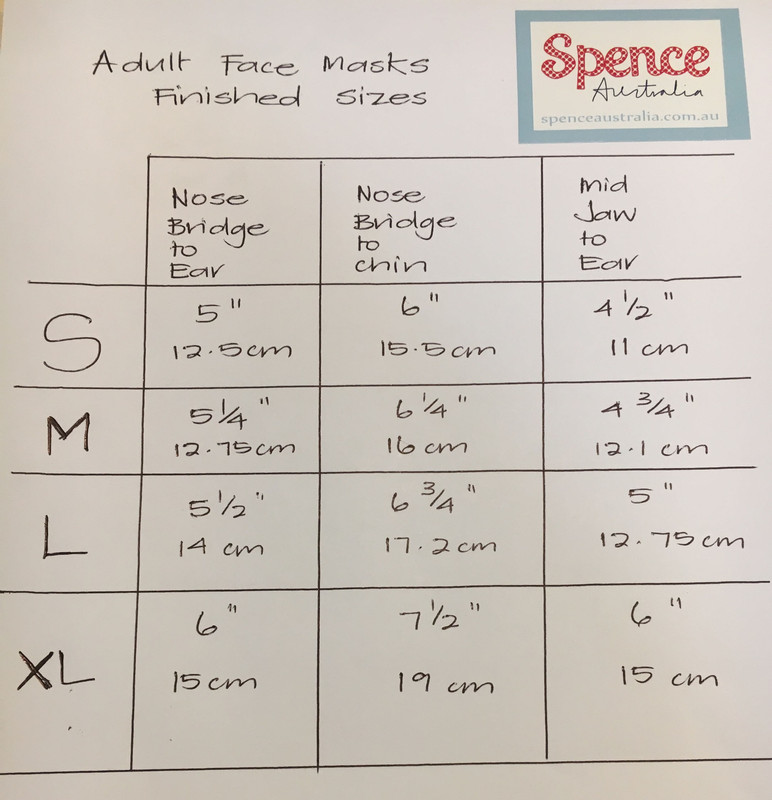 Adult Face Masks
Finished Sizes
Spence
Australia
spenceaustralia.com.au
Nose Bridge to Ear
Nose Bridge to chin
Mid Jaw to Ear
S
5" 6" 4 1/2"
12.5cm 15.5cm 11 cm
M
5 1/4" 6 1/4" 4 3/4"
12.75cm 16 cm 12.1 cm
L
5 1/2" 6 3/4" 5"
14 cm 17.2cm 12.75cm
XL
6" 7 1/2" 6"
15cm 19 cm 15 cm